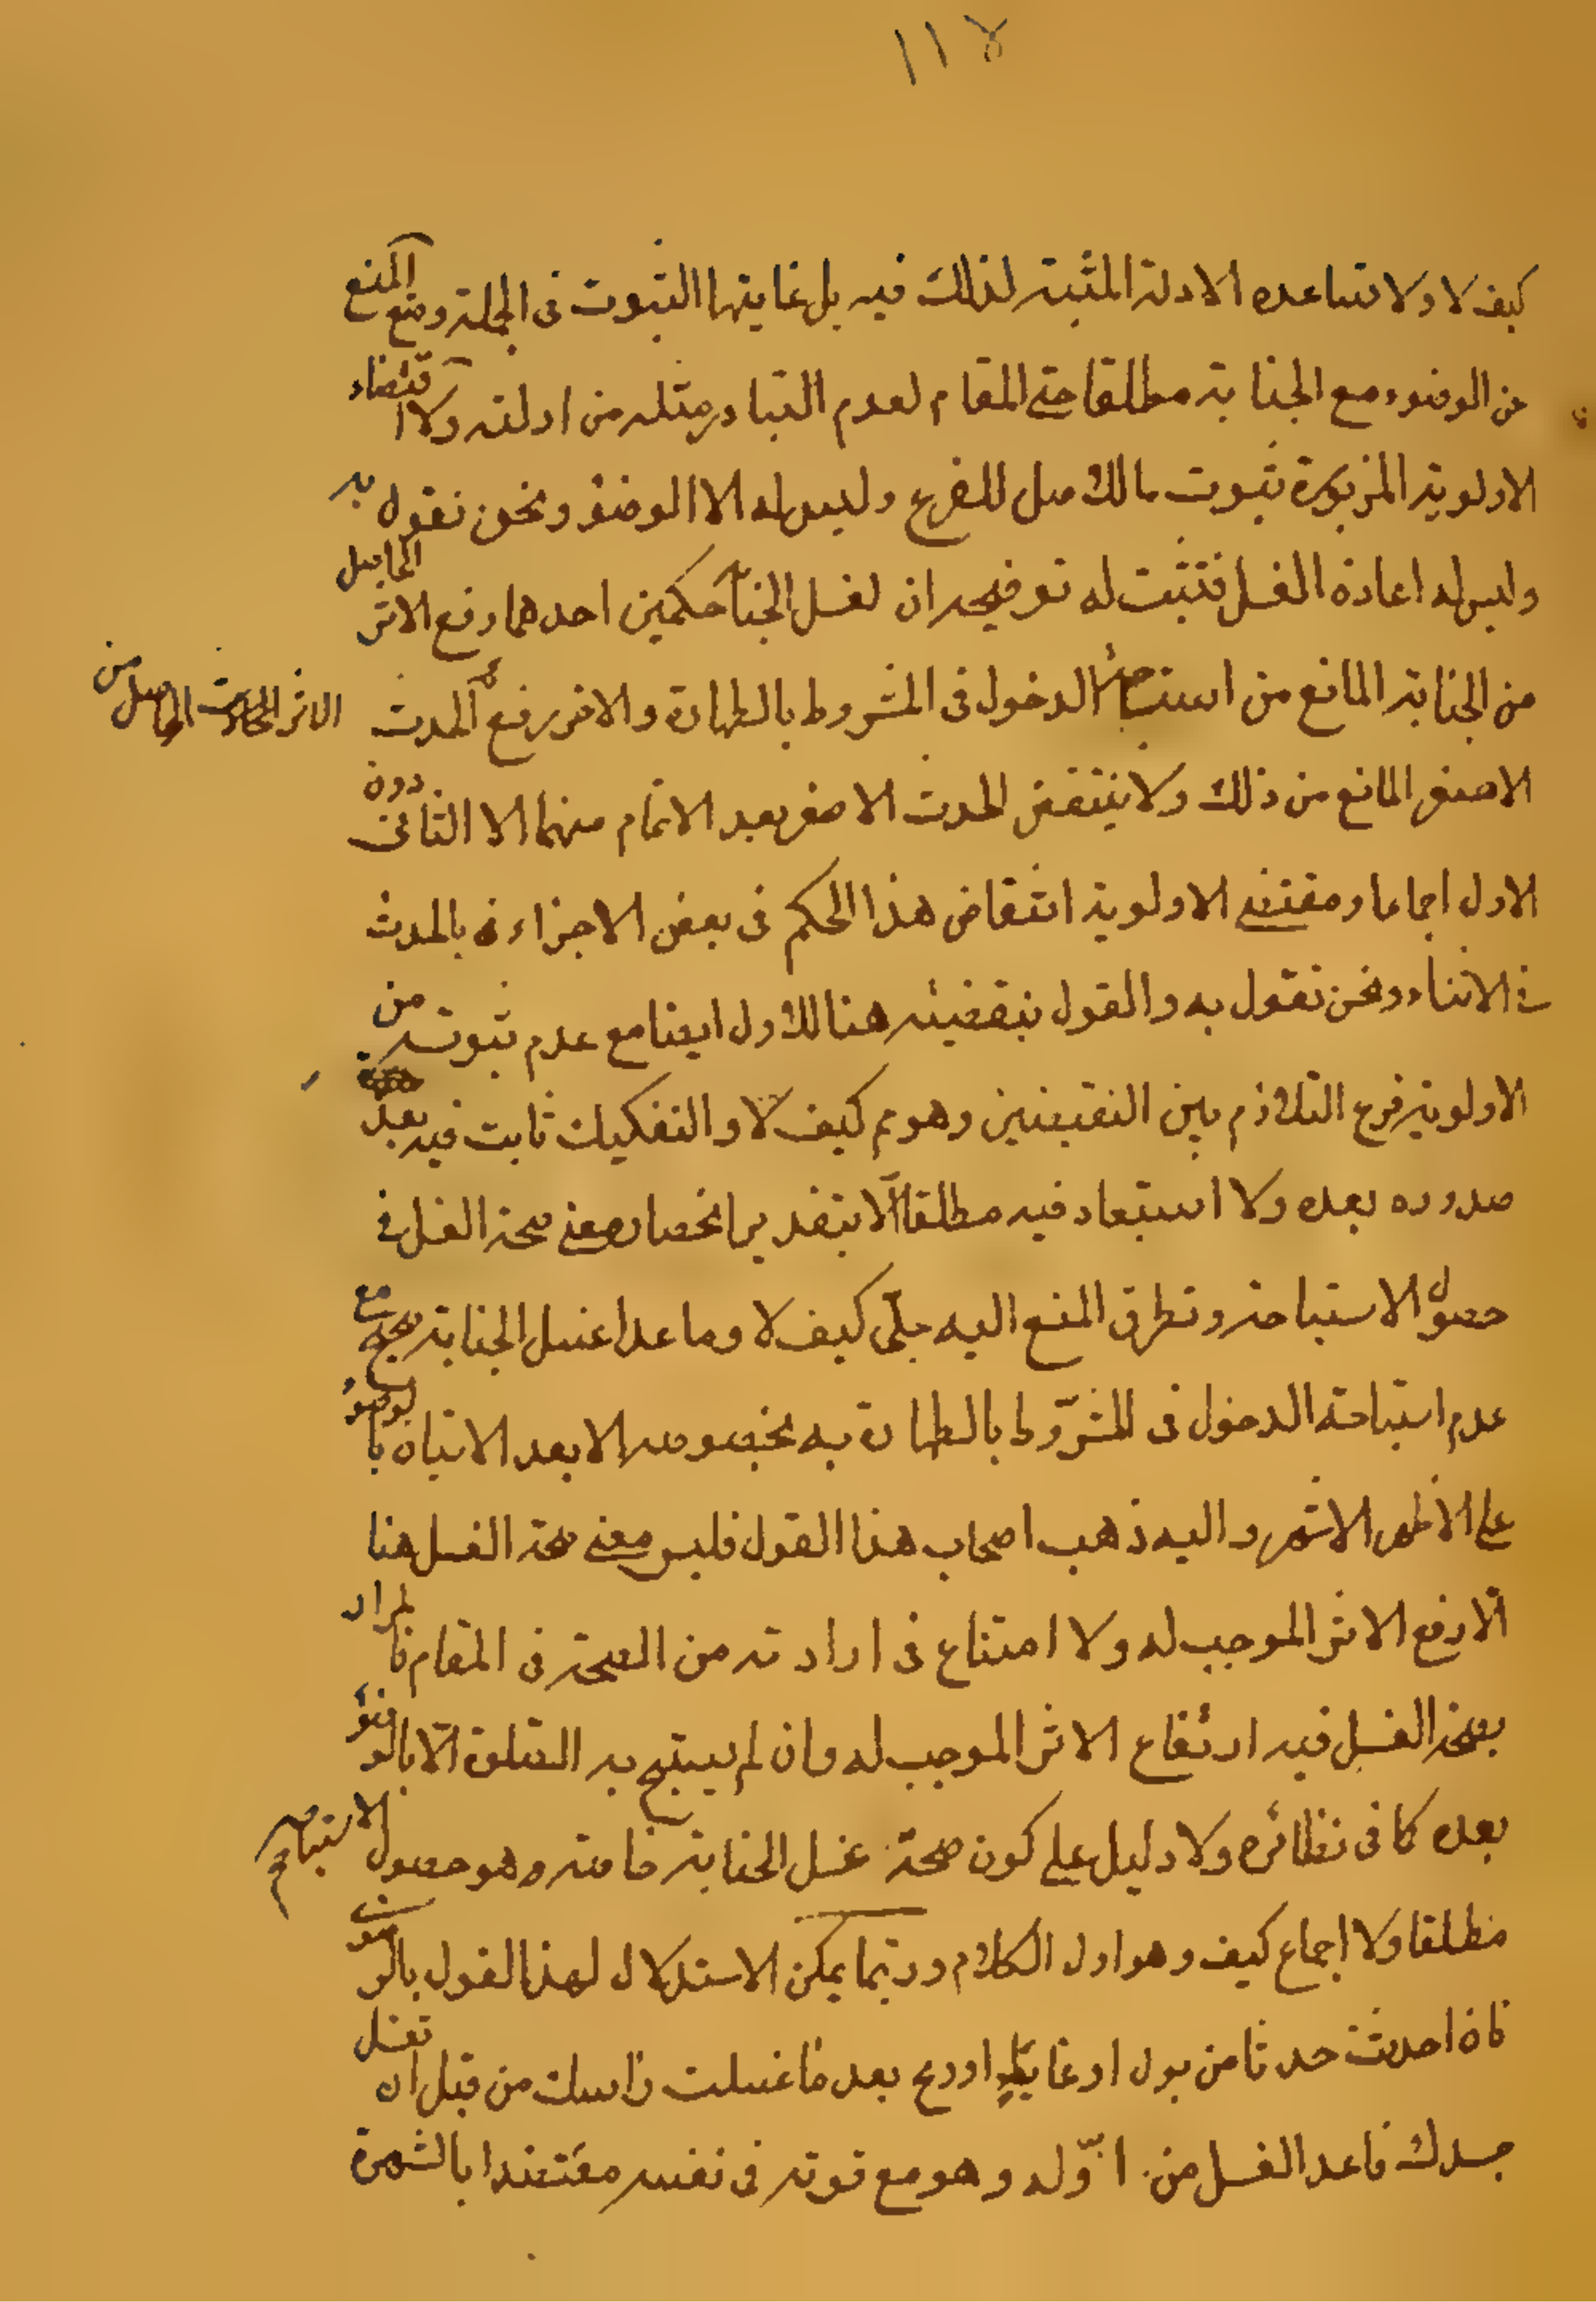 ١١٥
كيف لا ولا تساعده الادلة المثبتة لذلك فيه بل غايتها الثبوت فى الجملة ومنع المنع
عن الوضوء مع الجنابة مطلقا حتى المقام لعدم التبادر مثله من ادلته ولا اقتضاء
الاولوية المزبورة ثبوت ما للاصل للفرع وليس له الا الوضوء ونحن نقول به
وليس له اعادة الغسل فتثبت له توضيحه ان لغسل الجنابة حكمين احدهما رفع الاثر الحاصل
من الجنابة المانع من استباحة الدخول فى المشروط بالطهارة والاخر رفع الحدث
الاثر الحادث الحاصل من
الاصغر المانع من ذلك ولا ينتقض الحدث الاصغر بعد الاتمام منهما الا الثانى دون
الاول اجماعا ومقتضى الاولوية انتقاض هذا الحكم فى بعض الاجزاء بالحدث
فى الاثناء ونحن نقول به والقول بنقضيته هنا للاول ايضا مع عدم ثبوته من
الاولوية فرع التلازم بين النقيضين وهو مم كيف لا والتفكيك ثابت فيه بعد
صدوره بعده ولا استبعاد فيه مطلقا الا بتقدير انحصار معنى صحة الغسل فى
حصول الاستباحة وتطرق المنع اليه جلى كيف لا وما عدا غسل الجنابة يصح مع
عدم استباحة الدخول فى المشروط بالطهارة به بخصوصه الا بعد الاتيان بالوضوء
على الاظهر الاشهر واليه ذهب اصحاب هذا القول فليس معنى صحة الغسل هنا
الا رفع الاثر الموجب له ولا امتناع فى ارادته من الصحة فى المقام فالمراد
بصحة الغسل فيه ارتفاع الاثر الموجب له وان لم يستبح به الصلوة الا بالوضوء
بعده كما فى نظائره ولا دليل على كون صحة غسل الجنابة خاصة هو حصول الاستباحة
مطلقا ولا اجماع كيف وهو اول الكلام وربما يمكن الاستدلال لهذا القول بالرضوى
فان احدثت حدثا من بول او غايط او ريح بعد ما غسلت راسك من قبل ان تغسل
جسدك فاعد الغسل من اوله وهو مع قوته فى نفسه معتضدا بالشهرة